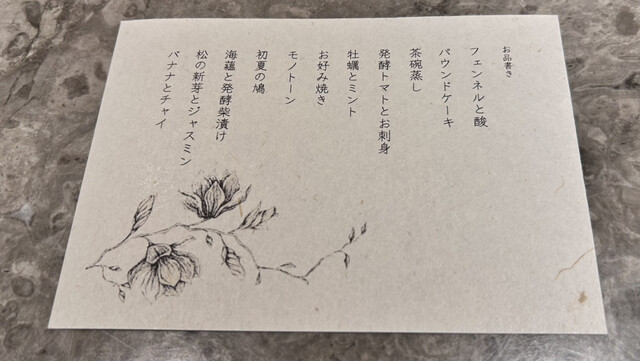 お品書き
フェンネルと酸
パウンドケーキ
茶碗蒸し
発酵トマトとお刺身
牡蠣とミント
お好み焼き
モノトーン
初夏の鳩
海蘊と発酵柴漬け
松の新芽とジャスミン
バナナとチャイ